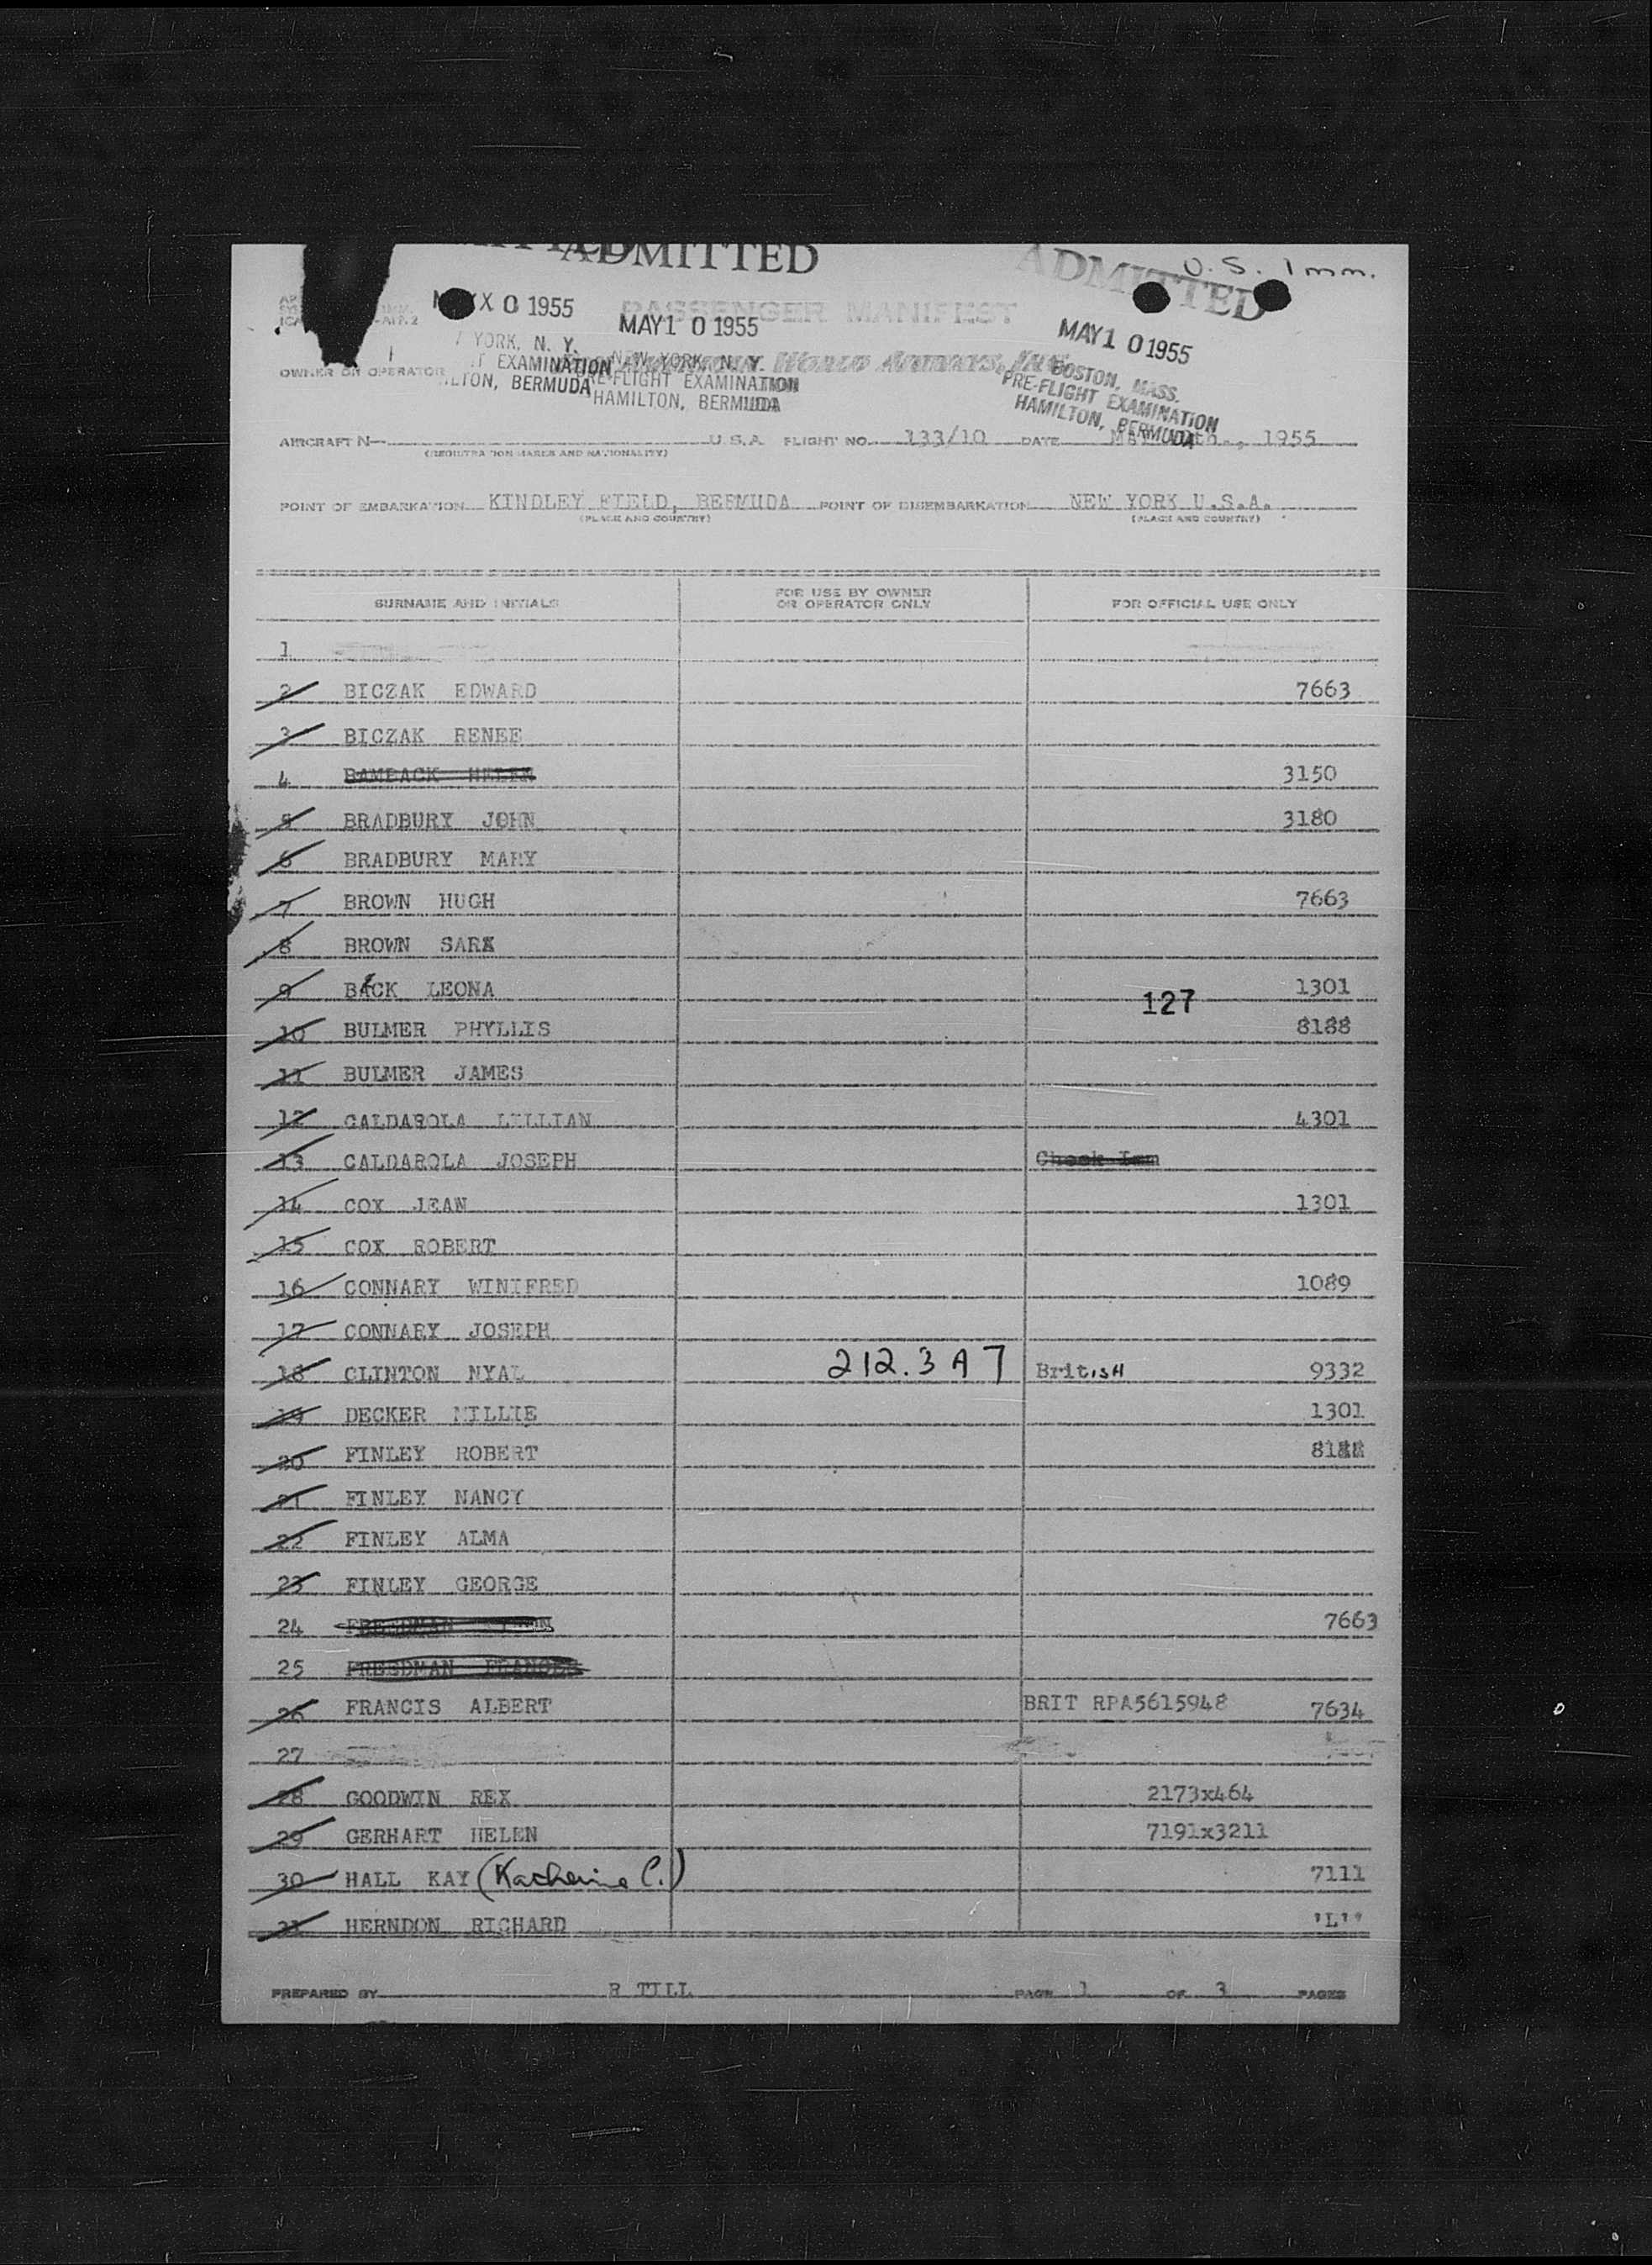 ADMITTED
ADMITTED
U.S. Imm.
0 1955
MAY 1 0 1955
PASSENGER MANIFEST
MAY 1 0 1955
YORK, N. Y.
NEW YORK, N. Y.
EXAMINATION
WORLD AIRWAYS, INC.
BOSTON, MASS.
OWNER OR OPERATOR
PRE-FLIGHT EXAMINATION
PRE-FLIGHT EXAMINATION
HAMILTON, BERMUDA
HAMILTON, BERMUDA
HAMILTON, BERMUDA
AIRCRAFT N— U.S.A. FLIGHT NO. 133/10 DATE 1955
(REGISTRATION MARKS AND NATIONALITY)
POINT OF EMBARKATION KINDLEY FIELD, BERMUDA POINT OF DISEMBARKATION NEW YORK U.S.A.
(PLACE AND COUNTRY) (PLACE AND COUNTRY)
SURNAME AND INITIALS FOR USE BY OWNER OR OPERATOR ONLY FOR OFFICIAL USE ONLY
1
2 BICZAK EDWARD 7663
3 BICZAK RENEE
4 BAMBACK HELEN 3150
5 BRADBURY JOHN 3180
6 BRADBURY MARY
7 BROWN HUGH 7663
8 BROWN
9 LEONA 1301
127
10 BULMER PHYLLIS 8188
11 BULMER JAMES
12 CALDAROLA LILLIAN 4301
13 CALDAROLA JOSEPH Check Imm
14 COX JEAN 1301
15 COX ROBERT
16 CONNARY WINIFRED 1089
17 CONNARY JOSEPH
18 CLINTON NYAL 212.3 A 7 British 9332
19 DECKER MILLIE 1301
20 FINLEY ROBERT
21 FINLEY NANCY
22 FINLEY ALMA
23 FINLEY GEORGE
24 FREEDMAN 7663
25 FREEDMAN FRANCES
26 FRANCIS ALBERT BRIT RPA5615948 7634
27
28 GOODWIN REX 2173x464
29 GERHART HELEN 7191x3211
30 HALL KAY (Katherine C.) 7111
31 HERNDON RICHARD 'L''
PREPARED BY R TILL PAGE 1 OF 3 PAGES